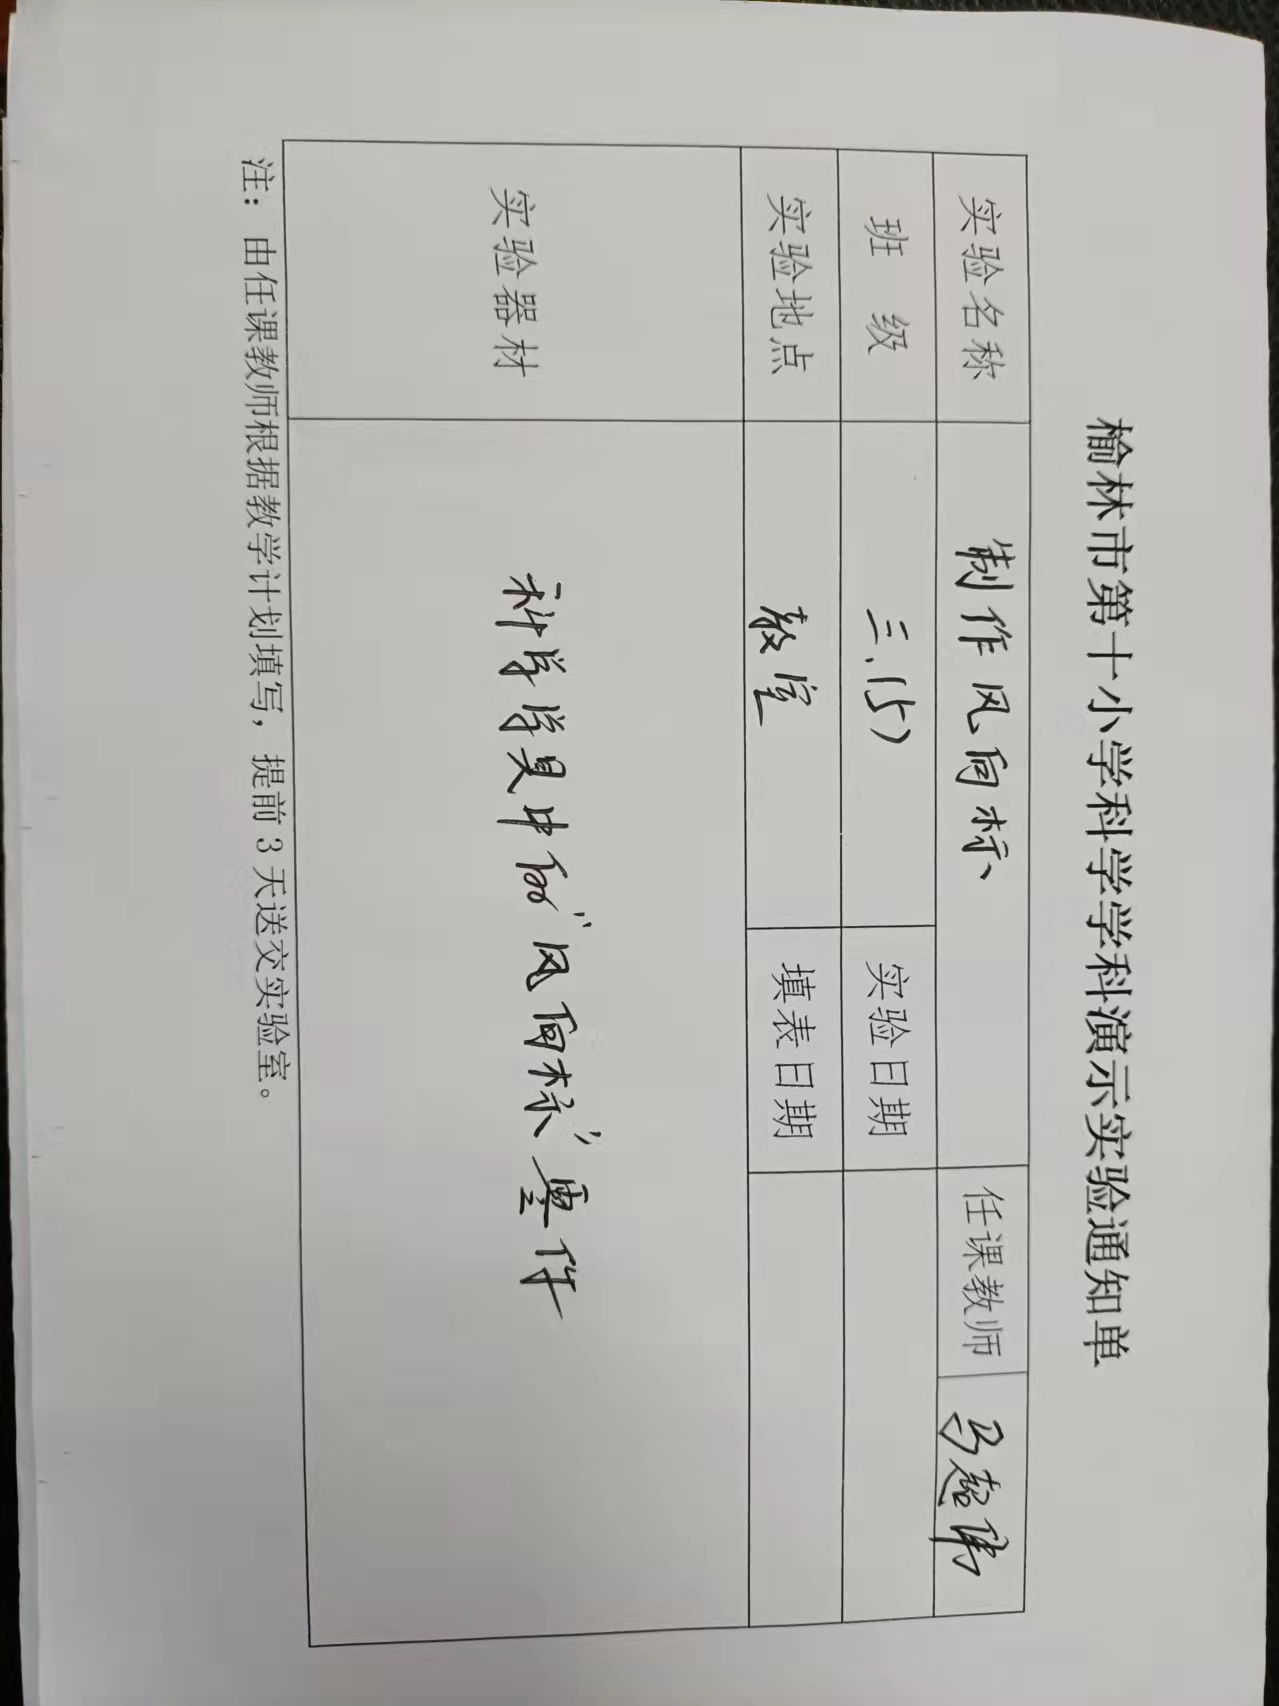 榆林市第十小学科学学科演示实验通知单
实验名称 制作风向标 任课教师 马超伟
班 级 三.(5) 实验日期
实验地点 教室 填表日期
实验器材 科学学具中的"风向标"零件
注：由任课教师根据教学计划填写，提前3天送交实验室。